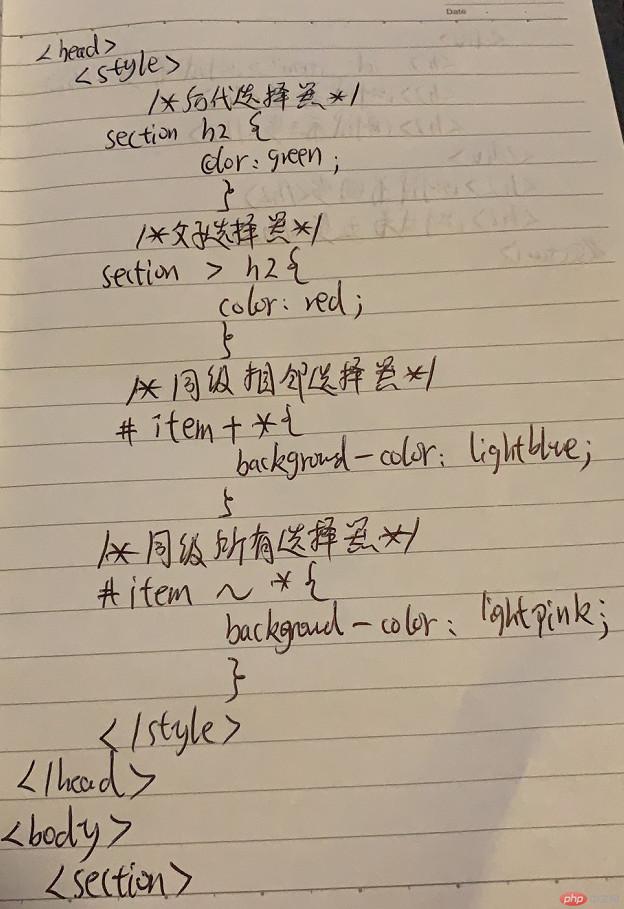 Date
<head>
<style>
/*后代选择器*/
section h2 {
color: green;
}
/*父子选择器*/
section > h2 {
color: red;
}
/*同级相邻选择器*/
# item + * {
background-color: lightblue;
}
/*同级所有选择器*/
# item ~ * {
background-color: lightpink;
}
</style>
</head>
<body>
<section>
php